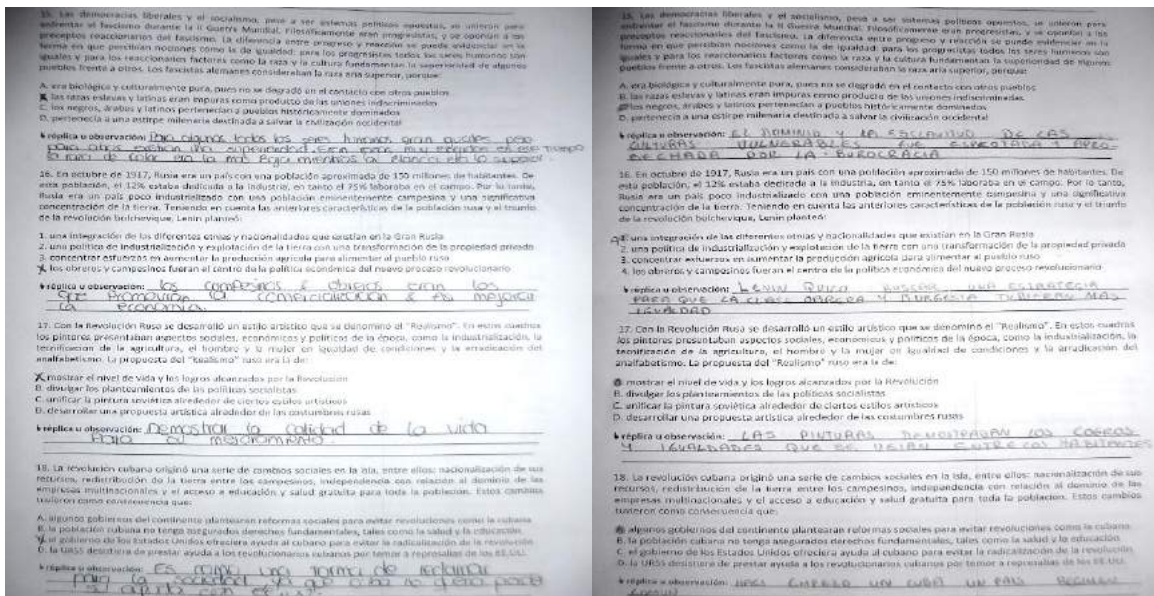 15. Las democracias liberales y el socialismo, pese a ser sistemas políticos opuestos, se unieron para
enfrentar el fascismo durante la II Guerra Mundial. Filosóficamente eran progresistas, y se oponían a los
preceptos reaccionarios del fascismo. La diferencia entre progreso y reacción se puede evidenciar en la
forma en que percibían nociones como la de igualdad: para los progresistas todos los seres humanos son
iguales y para los reaccionarios factores como la raza y la cultura fundamentan la superioridad de algunos
pueblos frente a otros. Los fascistas alemanes consideraban la raza aria superior, porque:
A. era biológica y culturalmente pura, pues no se degradó en el contacto con otros pueblos
las razas eslavas y latinas eran impuras como producto de las uniones indiscriminadas
C. los negros, árabes y latinos pertenecían a pueblos históricamente dominados
D. pertenecía a una estirpe milenaria destinada a salvar la civilización occidental
réplica u observación: Para algunos todos los seres humanos eran iguales pero
para otros existian superioridad en ese tiempo
la raza de color era la mas baja mientras la blanca era lo superior.
16. En octubre de 1917, Rusia era un país con una población aproximada de 150 millones de habitantes. De
esta población, el 12% estaba dedicada a la industria, en tanto el 75% laboraba en el campo. Por lo tanto,
Rusia era un país poco industrializado con una población eminentemente campesina y una significativa
concentración de la tierra. Teniendo en cuenta las anteriores características de la población rusa y el triunfo
de la revolución bolchevique, Lenin planteó:
1. una integración de las diferentes etnias y nacionalidades que existían en la Gran Rusia
2. una política de industrialización y explotación de la tierra con una transformación de la propiedad privada
3. concentrar esfuerzos en aumentar la producción agrícola para alimentar al pueblo ruso
los obreros y campesinos fueran el centro de la política económica del nuevo proceso revolucionario
réplica u observación: los campesinos & obreros eran los
que promovian la comercialización & asi mejorar
la economia.
17. Con la Revolución Rusa se desarrolló un estilo artístico que se denominó el "Realismo". En estos cuadros
los pintores presentaban aspectos sociales, económicos y políticos de la época, como la industrialización, la
tecnificación de la agricultura, el hombre y la mujer en igualdad de condiciones y la erradicación del
analfabetismo. La propuesta del "Realismo" ruso era la de:
mostrar el nivel de vida y los logros alcanzados por la Revolución
B. divulgar los planteamientos de las políticas socialistas
C. unificar la pintura soviética alrededor de ciertos estilos artísticos
D. desarrollar una propuesta artística alrededor de las costumbres rusas
réplica u observación: Demostrar la calidad de la vida
para al mejoramiento.
18. La revolución cubana originó una serie de cambios sociales en la isla, entre ellos: nacionalización de sus
recursos, redistribución de la tierra entre los campesinos, independencia con relación al dominio de las
empresas multinacionales y el acceso a educación y salud gratuita para toda la población. Estos cambios
tuvieron como consecuencia que:
A. algunos gobiernos del continente plantearan reformas sociales para evitar revoluciones como la cubana
B. la población cubana no tenga asegurados derechos fundamentales, tales como la salud y la educación
el gobierno de los Estados Unidos ofreciera ayuda al cubano para evitar la radicalización de la revolución
D. la URSS desistiera de prestar ayuda a los revolucionarios cubanos por temor a represalias de los EE.UU.
réplica u observación: Es como una forma de reclamar
para la sociedad ya que cuba no
15. Las democracias liberales y el socialismo, pese a ser sistemas políticos opuestos, se unieron para
enfrentar el fascismo durante la II Guerra Mundial. Filosóficamente eran progresistas, y se oponían a los
preceptos reaccionarios del fascismo. La diferencia entre progreso y reacción se puede evidenciar en la
forma en que percibían nociones como la de igualdad: para los progresistas todos los seres humanos son
iguales y para los reaccionarios factores como la raza y la cultura fundamentan la superioridad de algunos
pueblos frente a otros. Los fascistas alemanes consideraban la raza aria superior, porque:
A. era biológica y culturalmente pura, pues no se degradó en el contacto con otros pueblos
B. las razas eslavas y latinas eran impuras como producto de las uniones indiscriminadas
los negros, árabes y latinos pertenecían a pueblos históricamente dominados
D. pertenecía a una estirpe milenaria destinada a salvar la civilización occidental
réplica u observación: EL DOMINIO Y LA ESCLAVITUD DE LAS
CULTURAS VULNERABLES FUE EXPLOTADA Y APRO-
BECHADA POR LA BUROCRACIA
16. En octubre de 1917, Rusia era un país con una población aproximada de 150 millones de habitantes. De
esta población, el 12% estaba dedicada a la industria, en tanto el 75% laboraba en el campo. Por lo tanto,
Rusia era un país poco industrializado con una población eminentemente campesina y una significativa
concentración de la tierra. Teniendo en cuenta las anteriores características de la población rusa y el triunfo
de la revolución bolchevique, Lenin planteó:
una integración de las diferentes etnias y nacionalidades que existían en la Gran Rusia
2. una política de industrialización y explotación de la tierra con una transformación de la propiedad privada
3. concentrar esfuerzos en aumentar la producción agrícola para alimentar al pueblo ruso
4. los obreros y campesinos fueran el centro de la política económica del nuevo proceso revolucionario
réplica u observación: LENIN QUISO BUSCAR UNA ESTRATEGIA
PARA QUE LA CLASE OBRERA Y BURGESIA TUBIERAN MAS
IGUALDAD
17. Con la Revolución Rusa se desarrolló un estilo artístico que se denominó el "Realismo". En estos cuadros
los pintores presentaban aspectos sociales, económicos y políticos de la época, como la industrialización, la
tecnificación de la agricultura, el hombre y la mujer en igualdad de condiciones y la erradicación del
analfabetismo. La propuesta del "Realismo" ruso era la de:
mostrar el nivel de vida y los logros alcanzados por la Revolución
B. divulgar los planteamientos de las políticas socialistas
C. unificar la pintura soviética alrededor de ciertos estilos artísticos
D. desarrollar una propuesta artística alrededor de las costumbres rusas
réplica u observación: LAS PINTURAS DEMOSTRABAN LOS LOGROS
Y IGUALDADES QUE SE VEIAN ENTRE LOS HABITANTES
18. La revolución cubana originó una serie de cambios sociales en la isla, entre ellos: nacionalización de sus
recursos, redistribución de la tierra entre los campesinos, independencia con relación al dominio de las
empresas multinacionales y el acceso a educación y salud gratuita para toda la población. Estos cambios
tuvieron como consecuencia que:
algunos gobiernos del continente plantearan reformas sociales para evitar revoluciones como la cubana
B. la población cubana no tenga asegurados derechos fundamentales, tales como la salud y la educación
C. el gobierno de los Estados Unidos ofreciera ayuda al cubano para evitar la radicalización de la revolución
D. la URSS desistiera de prestar ayuda a los revolucionarios cubanos por temor a represalias de los EE.UU.
réplica u observación: EMPEZO UN CUBA UN PAIS REGIMEN